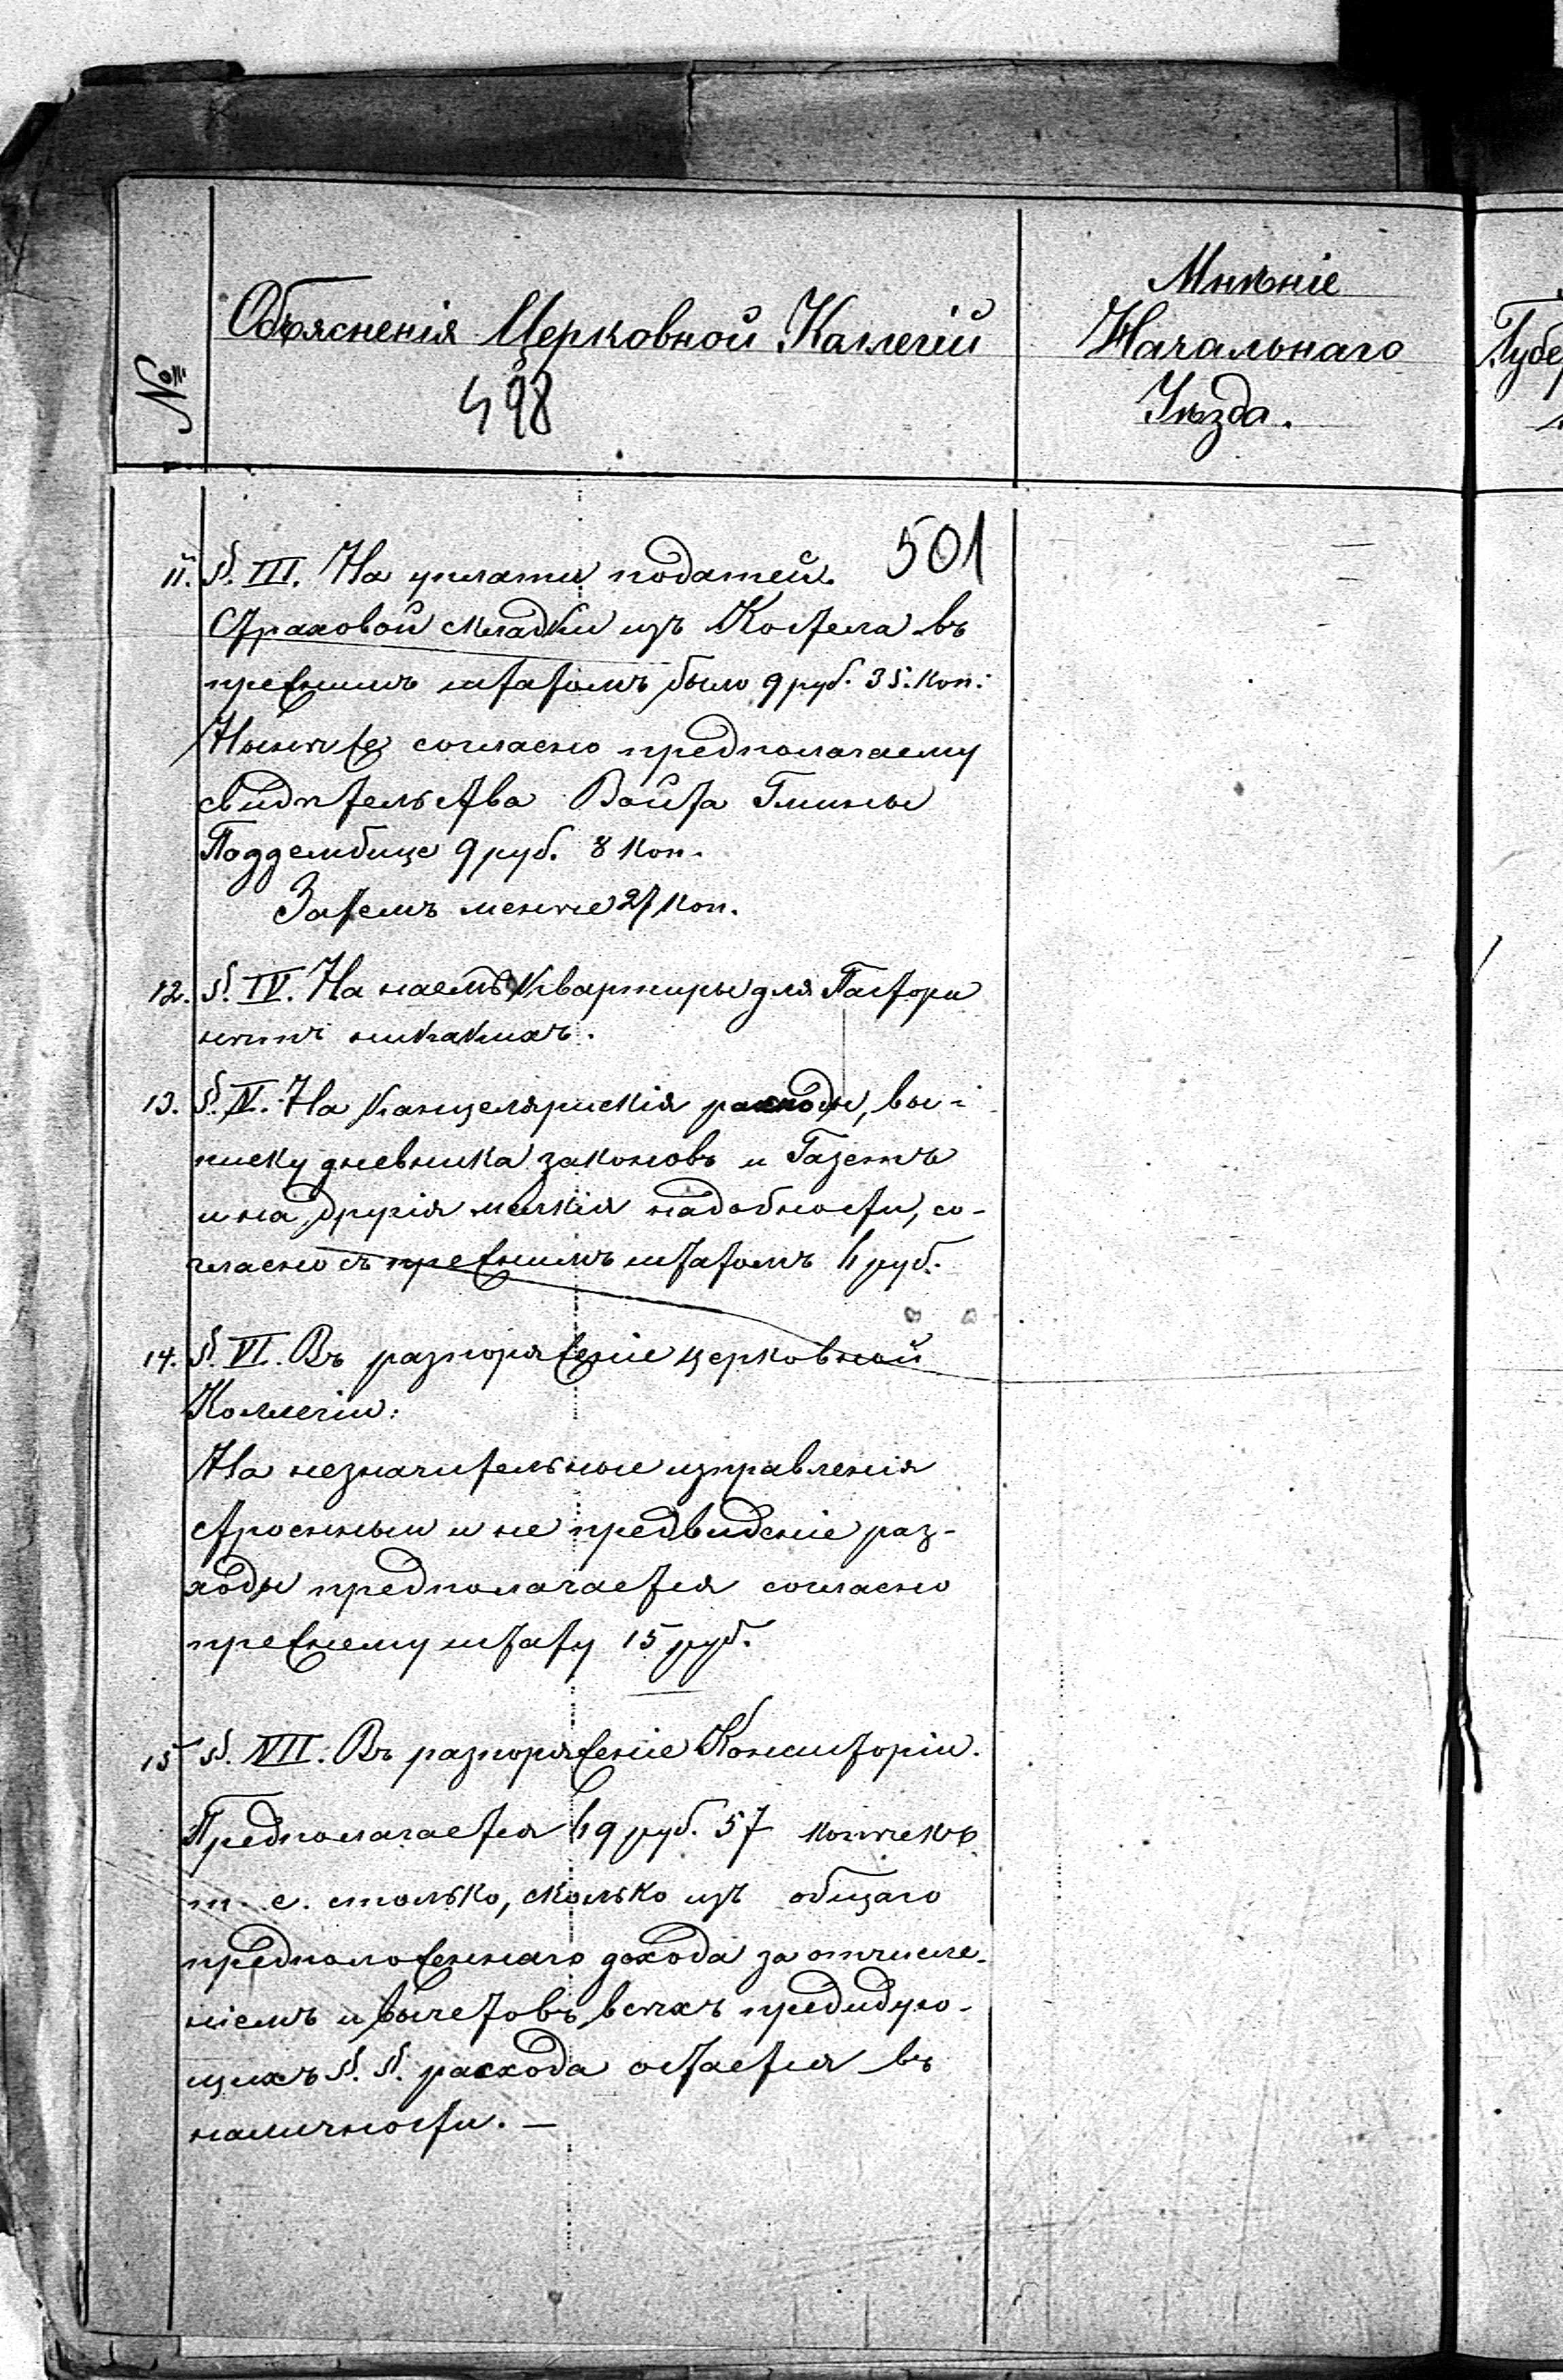 №
Объясненія Церковной Каллегіи
498
Мнѣніе
Начальнаго
Уѣзда.
Губе
501
11. §. III. На уплаты податей.
Страховой складки изъ Костела въ
прежнимъ штатомъ было 9 руб. 35. коп.
Нынѣ же согласно предполагаему
свидѣтельства Войта Гмины
Поддембице 9 руб. 8 коп.
Затемъ менѣе 27 коп.
12. §. IV. На наемъ квартиры для Пастора
нѣтъ никакихъ.
13. §. V. На канцелярискія расходы, вы-
писку дневника законовъ и Газетъ
и на другія мелкія надобности, со-
гласно съ прежнимъ штатомъ 4 руб.
14. §. VI. Въ разпоряженіе церковной
Коллегіи:
На незначительные изправленія
строенныи и не предвиденіе раз-
ходы предполагается согласно
прежнему штату 15 руб.
15 §. VII. Въ разпоряженіе Консисторіи.
Предполагается 49 руб. 57 копѣекъ
т. е. столько, сколько изъ общаго
предположеннаго дохода за отчисле-
ніемъ и вычетовъ всѣхъ предидую-
щихъ §. §. расхода остается въ
наличности. —